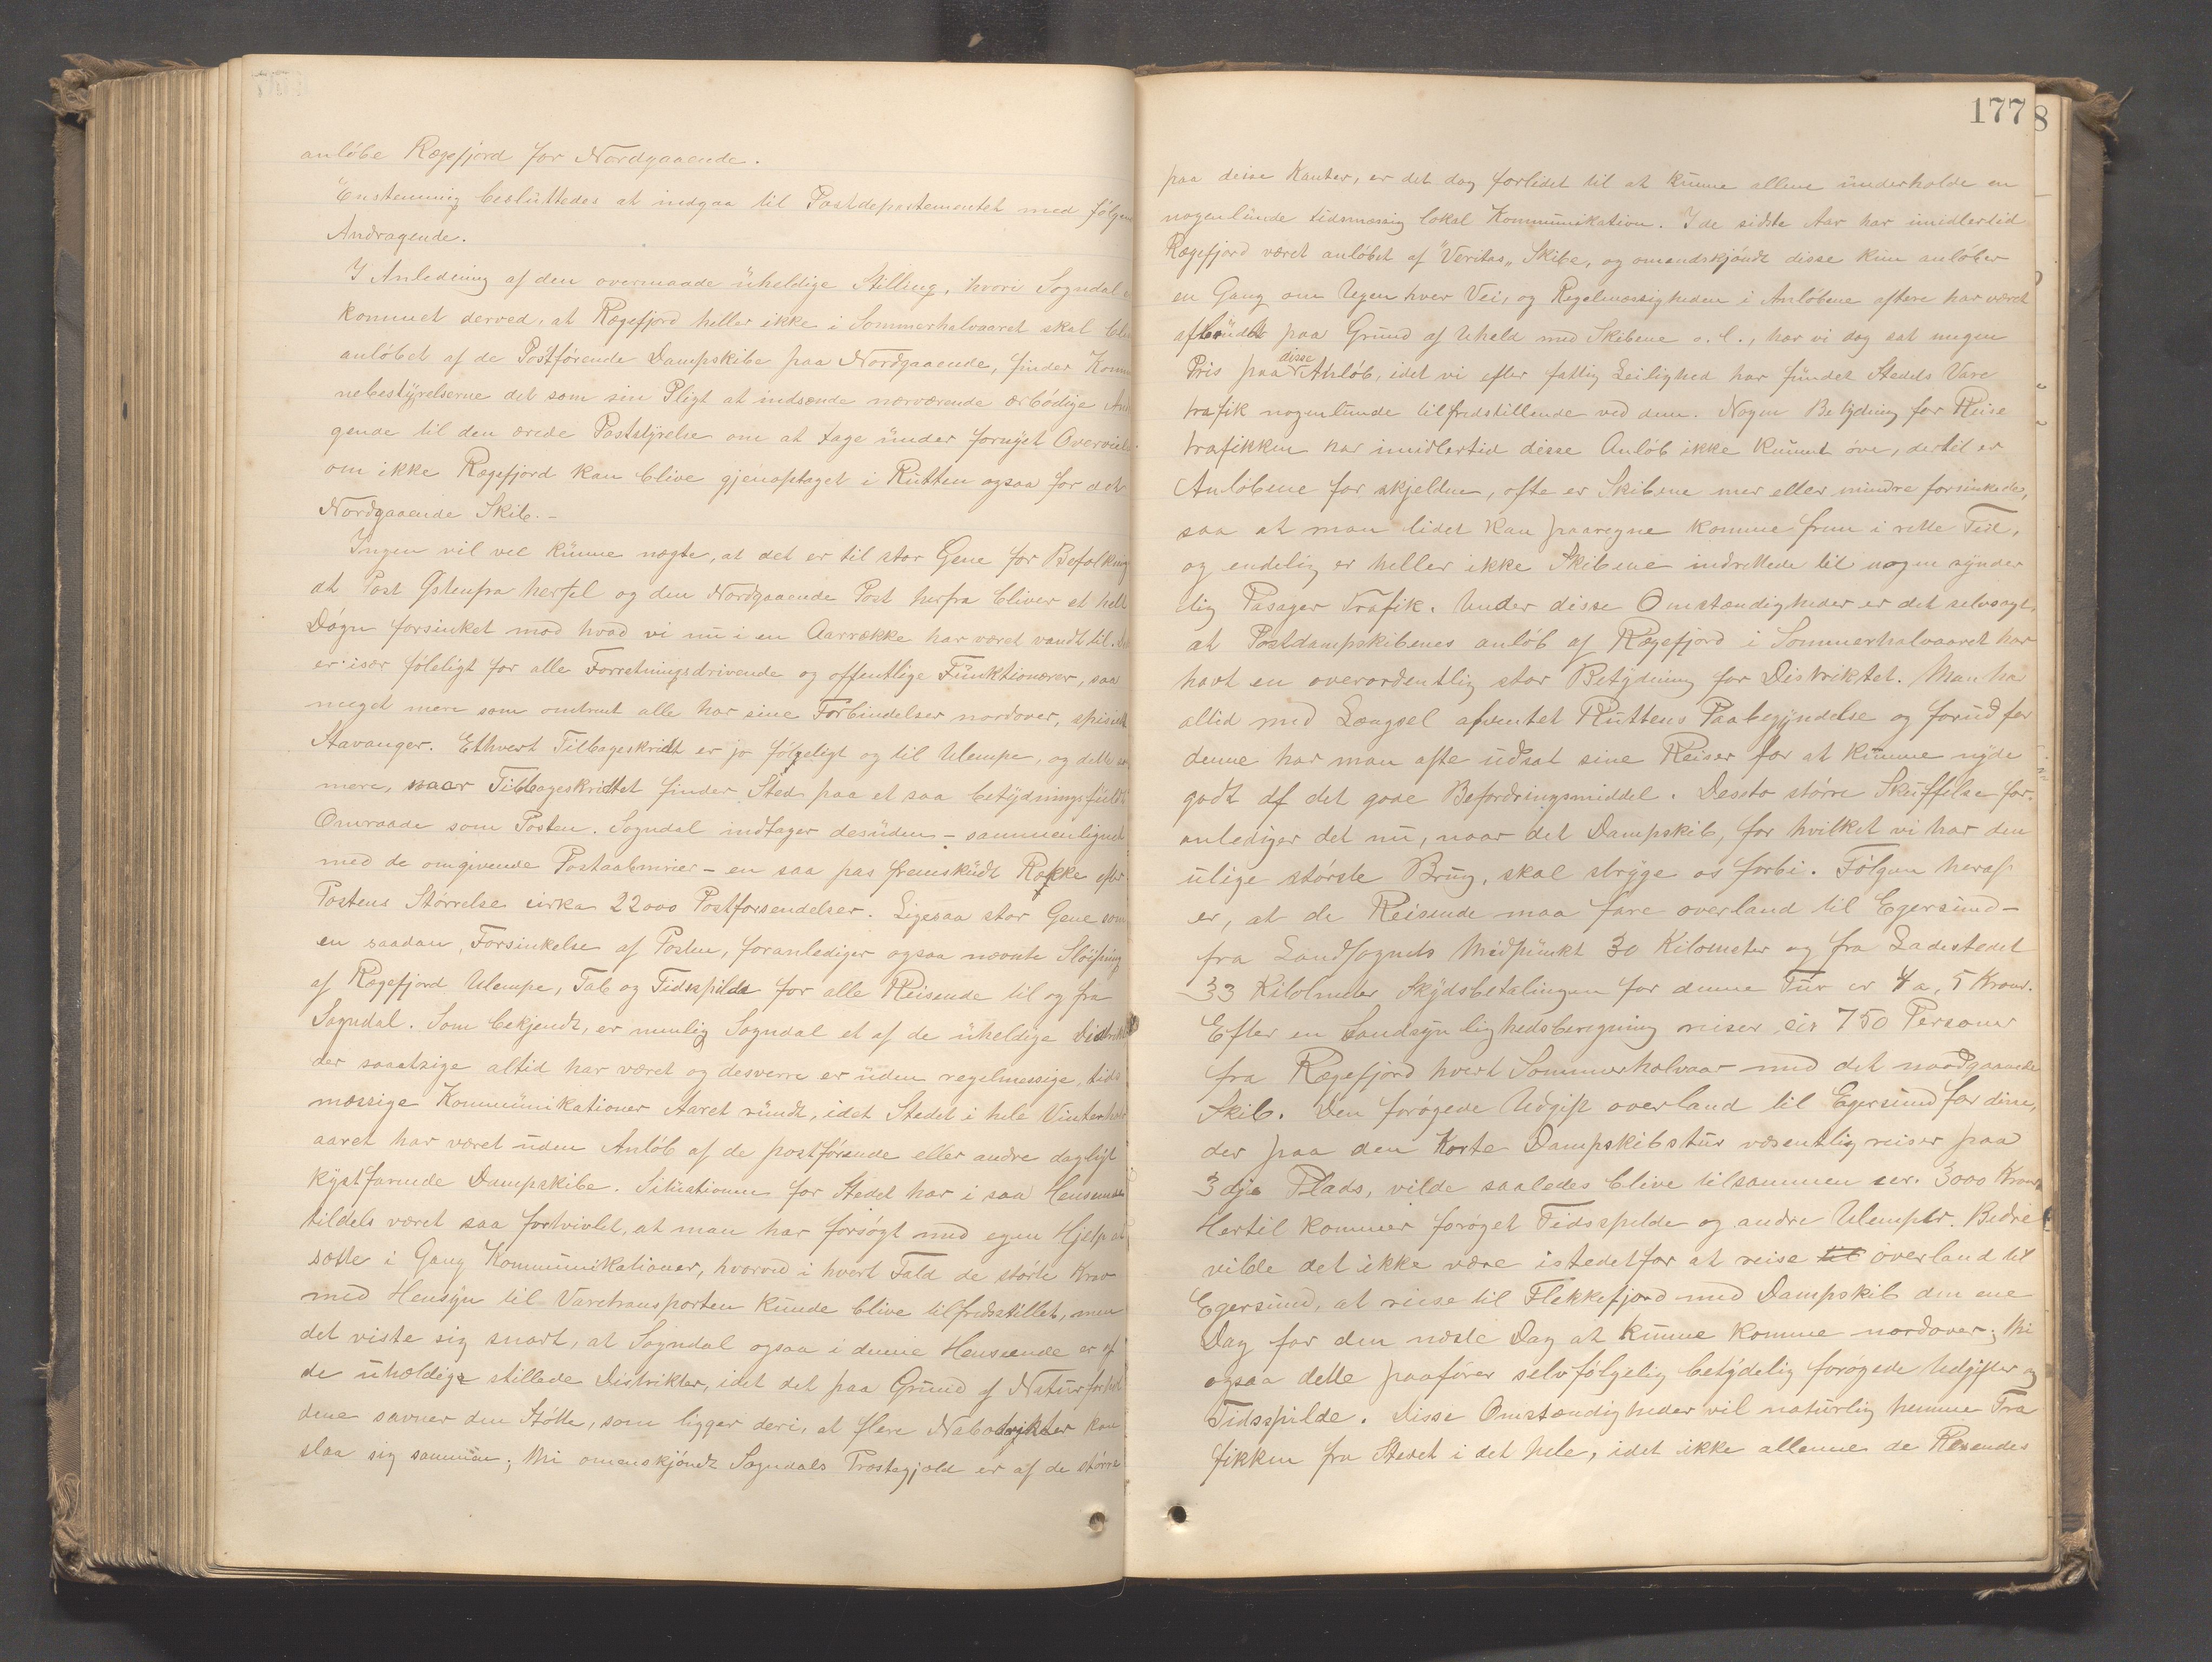 anløbe Rægefjord for Nordgaaende.
Enstemmig besluttedes at indgaa til Postdepartementet med følgen
Andragende.
I Anledning af den overmaade uheldige Stilling, hvori Sogndal er
kommet derved, at Rægefjord heller ikke i Sommerhalvaaret skal blive
anløbet af de Postførende Dampskibe paa Nordgaaende, finder Kommu
nebestyrelserne det som sin Pligt at indsende nærværende ærbødige Andra
gende til den ærede Poststyrelse om at tage under fornyet Overveielse
om ikke Rægefjord kan blive gjenoptaget i Rutten ogsaa for det
Nordgaaende Skib.-
Ingen vil vel kunne nægte, at det er til stor Gene for Befolkning
at Post Østenfra hertil og den Nordgaaende Post herfra bliver et helt
Døgn forsinket mod hvad vi nu i en Aarrække har været vandt til. Det
er især føleligt for alle Forretningsdrivende og offentlige Funktionærer, saa
meget mere som omtrent alle har sine Forbindelser nordover, spisielt
Stavanger. Ethvert Tilbageskridt er jo følgeligt og til Ulempe, og dette er
mere, naar Tilbageskridtet finder Sted paa et saa betydningsfuldt
Omraade som Posten. Sogndal indtager desuden - sammenlignet
med de omgivende Postaabnerier - en saa pas fremskudt Række efter
Postens Størrelse cirka 22000 Postforsendelser. Ligesaa stor Gene som
en saadan Forsinkelse af Posten, foranlediger ogsaa nævnte Sløifning
af Rægefjord Ulempe, Tab og Tidsspilde for alle Reisende til og fra
Sogndal. Som bekjendt, er nemlig Sogndal et af de uheldige Distrikter
der saaatsige altid har været og desverre er uden regelmessige, tids
mæssige Kommunikationer Aaret rundt, idet Stedet i hele Vinterhalv
aaret har været uden Anløb af de postførende eller andre dagligt
kystfarende Dampskibe. Situationen for Stedet har i saa Henseende
tildels været saa fortvivlet, at man har forsøgt med egen Hjelp at
sætte i Gang Kommunikationer, hvorved i hvert Fald de største Krav
med Hensyn til Varetransporten kunde blive tilfredsstillet, men
det viste sig snart, at Sogndal ogsaa i denne Henseende er af
de uheldigt stillede Distrikter, idet det paa Grund af Naturforhol
dene savner den Støtte, som ligger deri, at flere Nabodistrikter kan
slaa sig sammen; thi omenskjøndt Sogndals Præstegjæld er af de større
177
8
paa disse Kanter, er det dog forlidet til at kunne allene underholde en
nogenlunde tidsmæssig lokal Kommunikation. I de sidste Aar har imidlertid
Rægefjord været anløbet af "Veritas" Skibe, og omendskjøndt disse kun anløber
en Gang om Ugen hver Vei, og Regelmæssigheden i Anløbene oftere har været
afbrudt paa Grund af Uheld med Skibene o. l., har vi dog sat megen
Pris paa disse Anløb, idet vi efter fattig Leilighed har fundet Stedets Vare
trafik nogenlunde tilfredstillende ved dem. Nogen Betydning for Reise
trafikken har imidlertid disse Anløb ikke kunnet øve, dertil er
Anløbene for skjeldne, ofte er Skibene mer eller mindre forsinkede,
saa at man lidet kan paaregne komme frem i rette Tid,
og endelig er heller ikke Skibene indrettede til nogen synder
lig Pasager Trafik. Under disse Omstændigheder er det selvsagt,
at Postdampskibenes anløb af Rægefjord i Sommerhalvaaret har
havt en overordentlig stor Betydning for Distriktet. Man har
altid med Længsel afventet Ruttens Paabegyndelse og forud for
denne har man ofte udsat sine Reiser for at kunne nyde
godt af det gode Befordringsmiddel. Desto større Skuffelse for-
anlediger det nu, naar det Dampskib, for hvilket vi har den
ulige største Brug, skal stryge os forbi. Følgen heraf
er, at de Reisende maa fare overland til Egersund -
fra Landsognets Midpunkt 30 Kilometer og fra Ladestedet
33 Kilolmeter Skydsbetalingen for denne Tur er 4 a, 5 Kroner.
Efter en Sandsynlighedsberegning reiser cir 750 Personer
fra Rægefjord hvert Sommerhalvaar med det nordgaaende
Skib. Den forøgede Udgift overland til Egersund for disse,
der paa den Korte Dampskibstur væsentlig reiser paa
3dje Plads, vilde saaledes blive tilsammen cir. 3000 Kroner
Hertil kommer forøget Tidsspilde og andre Ulemper. Bedre
vilde det ikke være istedetfor at reise til overland til
Egersund, at reise til Flekkefjord med Dampskib den ene
Dag for den næste Dag at kunne komme nordover; thi
ogsaa dette paafører selvfølgelig betydelig forøgede Udgifter og
Tidsspilde. Disse Omstændigheder vil naturlig hemme Tra
fikken fra Stedet i det hele, idet ikke allenne de Resendes